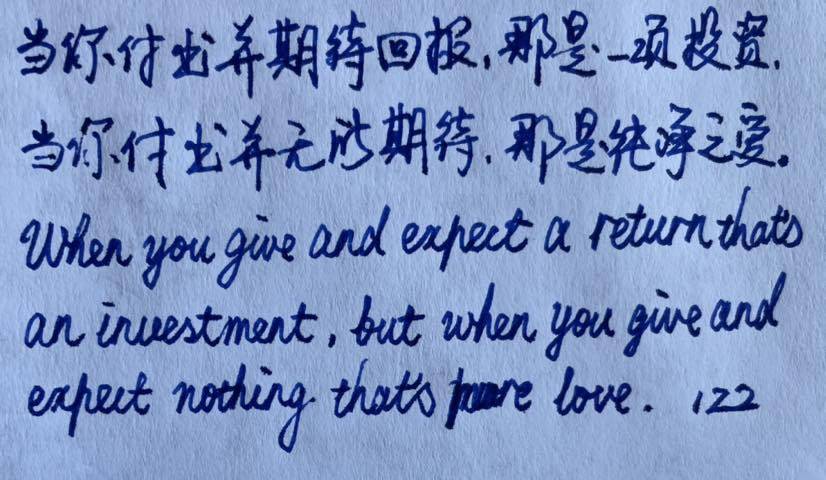 当你付出并期待回报,那是一项投资.
当你付出并无所期待.那是纯净之爱。
When you give and expect a return that's
an investment, but when you give and
expect nothing that's pure love. 122